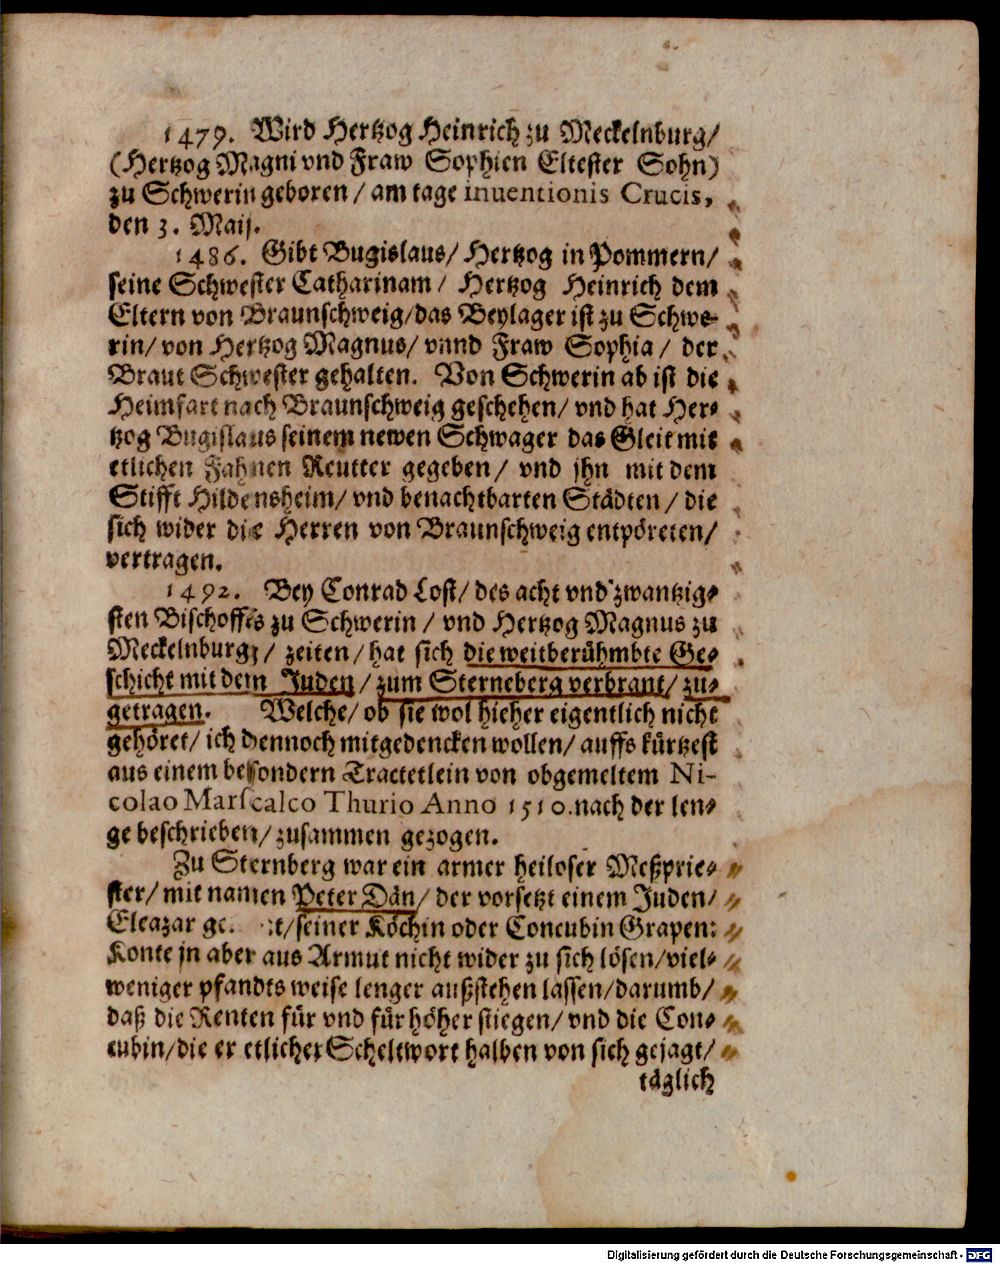 1479. Wird Hertzog Heinrich zu Meckelnburg/
(Hertzog Magni vnd Fraw Sophien Eltester Sohn)
zu Schwerin geboren / am tage inuentionis Crucis,
den 3. Maij.
1486. Gibt Bugislaus/ Hertzog in Pommern/
seine Schwester Catharinam / Hertzog Heinrich dem
Eltern von Braunschweig/das Beylager ist zu Schwe-
rin/ von Hertzog Magnus/ vnnd Fraw Sophia / der
Braut Schwester gehalten. Von Schwerin ab ist die
Heimfart nach Braunschweig geschehen/ vnd hat Her-
tzog Bugislaus seinem newen Schwager das Gleit mit
etlichen Fahnen Reutter gegeben/ vnd jhn mit dem
Stifft Hildensheim/ vnd benachtbarten Städten / die
sich wider die Herren von Braunschweig entpöreten/
vertragen.
1492. Bey Conrad Lost/ des acht vnd zwantzig-
sten Bischoffes zu Schwerin / vnd Hertzog Magnus zu
Meckelnburg/ zeiten/ hat sich die weitberühmbte Ge-
schicht mit dem Juden / zum Sterneberg verbrant/ zu-
getragen. Welche/ ob sie wol hieher eigentlich nicht
gehöret/ ich dennoch mitgedencken wollen/ auffs kürtzest
aus einem besondern Tractetlein von obgemeltem Ni-
colao Marscalco Thurio Anno 1510. nach der len-
ge beschrieben/ zusammen gezogen.
Zu Sternberg war ein armer heiloser Meßprie-
ster/ mit namen Peter Dän/ der vorsetzt einem Juden/
Eleazar /seiner Köchin oder Concubin Grapen:
Konte jn aber aus Armut nicht wider zu sich lösen/viel-
weniger pfandts weise lenger außstehen lassen/darumb/
daß die Renten für vnd für höher stiegen/ vnd die Con-
cubin/die er etlicher Scheltwort halben von sich gejagt/
täglich
Digitalisierung gefördert durch die Deutsche Forschungsgemeinschaft - DFG